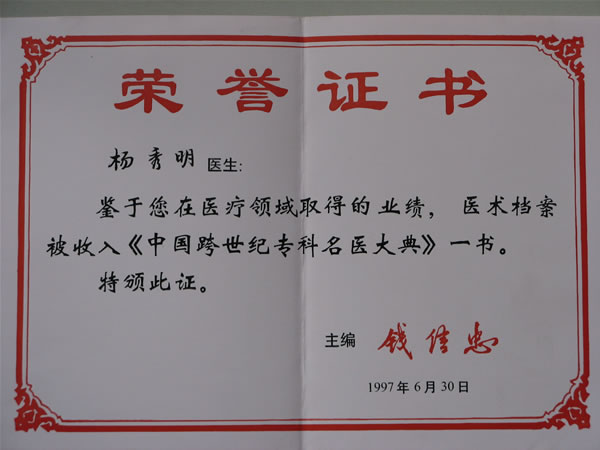 荣誉证书
杨秀明 医生:
鉴于您在医疗领域取得的业绩，医术档案
被收入《中国跨世纪专科名医大典》一书。
特颁此证。
主编 钱信忠
1997年6月30日